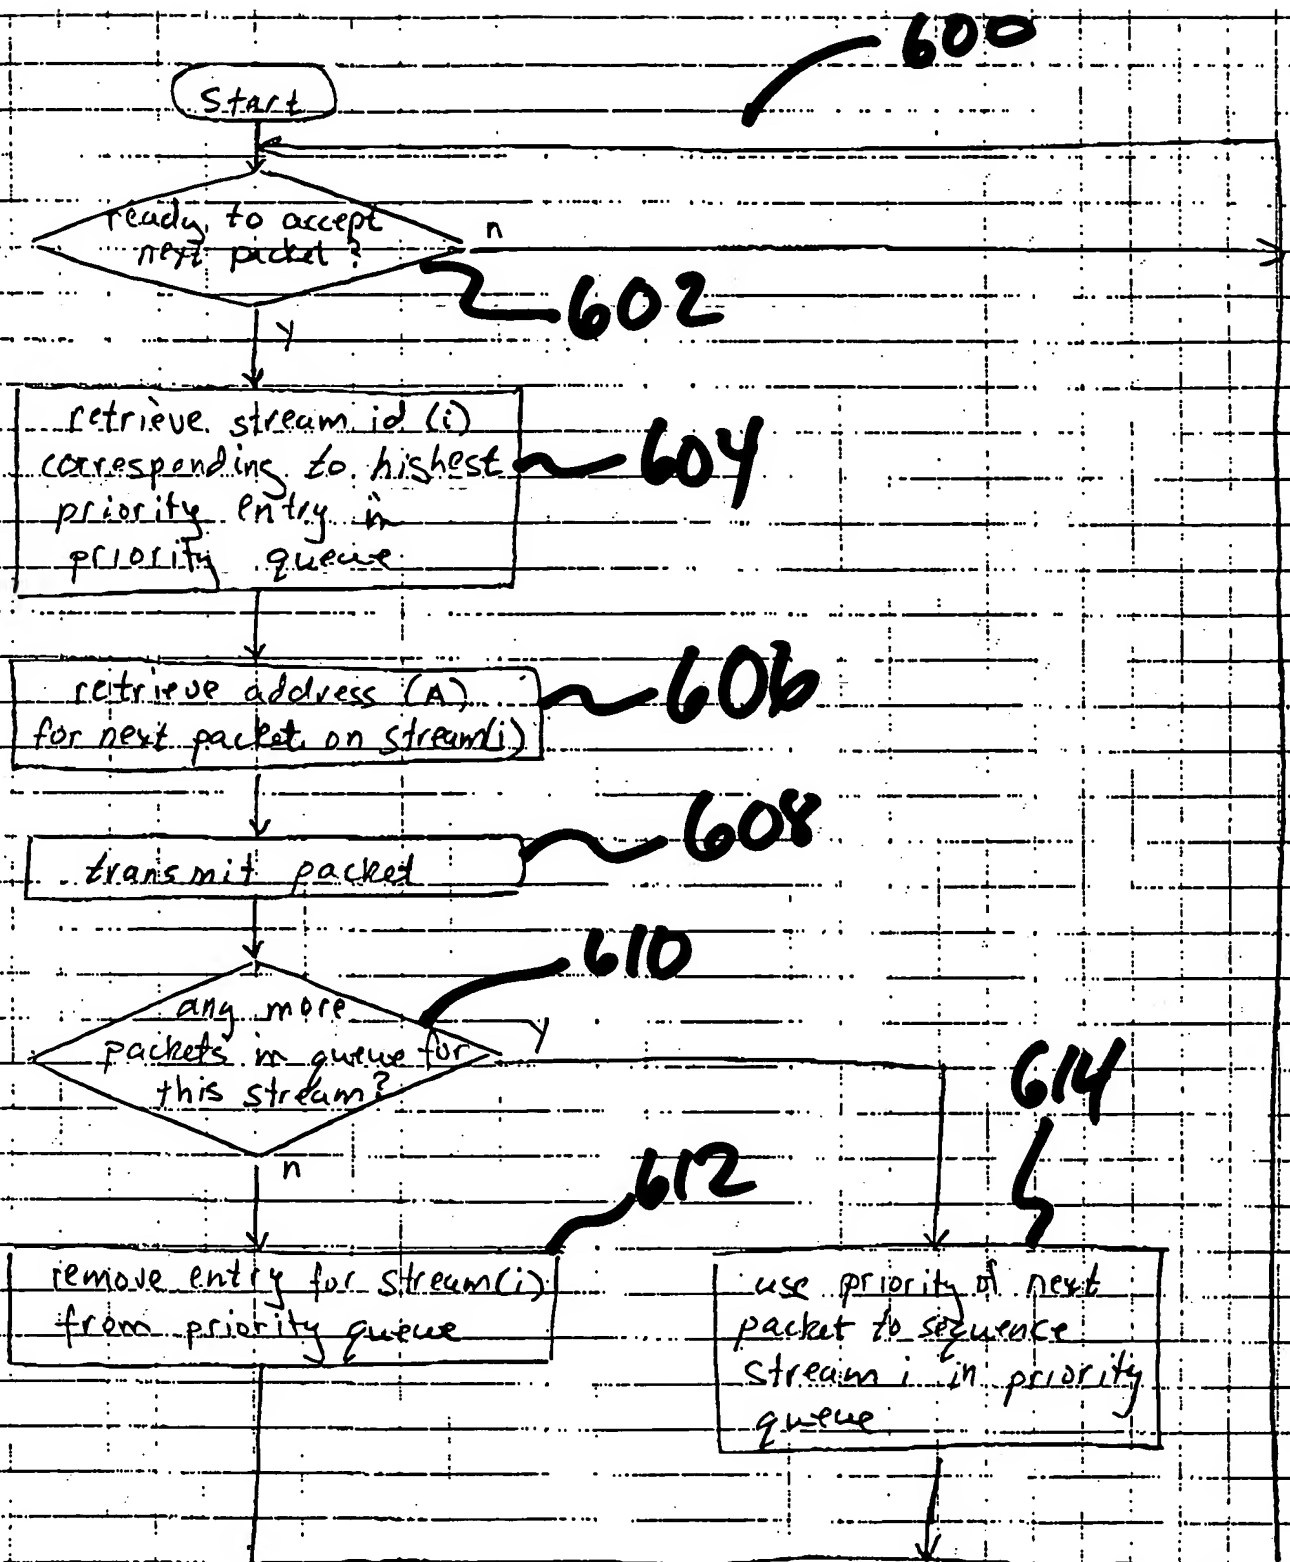 600
Start
ready to accept
next packet?
n
602
y
retrieve stream id (i)
corresponding to highest
priority entry in
priority queue
604
retrieve address (A)
for next packet on stream(i)
606
transmit packet
608
610
any more
packets in queue for
this stream?
y
n
614
612
remove entry for stream(i)
from priority queue
use priority of next
packet to sequence
stream i in priority
queue